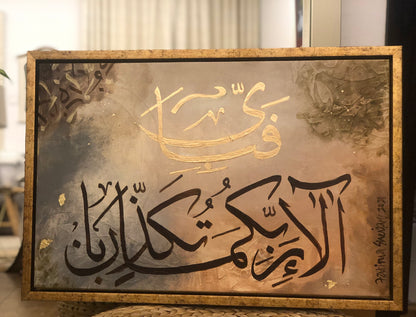 فَبِأَيِّ
آلَاءِ رَبِّكُمَا تُكَذِّبَانِ